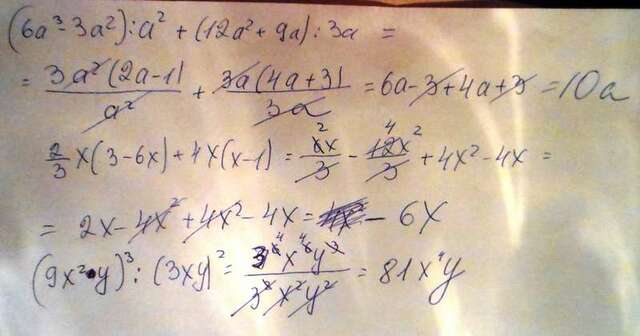 (6a³-3a²):a² + (12a²+9a):3a =
= 3a²(2a-1)/a² + 3a(4a+3)/3a = 6a-3+4a+3 = 10a
2/3 x(3-6x)+4x(x-1) = 6x/3 - 12x²/3 + 4x²-4x =
= 2x-4x²+4x²-4x = - 6x
(9x²·y)³ : (3xy)² = 3⁶x⁶y³/3²x²y² = 81x⁴y